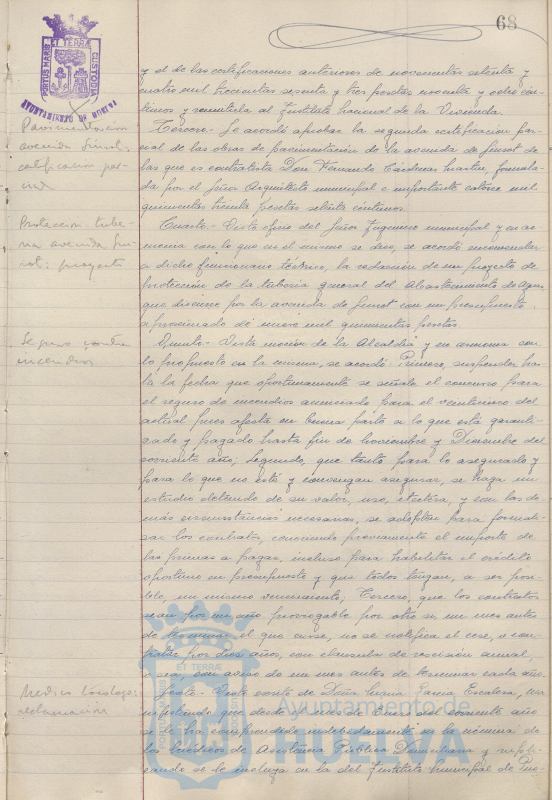 68
PORTUS MARIS ET TERRÆ CUSTODIA
AYUNTAMIENTO DE HUELVA
y el de las certificaciones anteriores de novecientas setenta y
cuatro mil trescientas sesenta y tres pesetas noventa y ocho cén-
timos y remitirla al Instituto Nacional de la Vivienda.
Pavimentación
avenida Guiot:
certificación par-
cial
Tercero.- Se acordó aprobar la segunda certificación par-
cial de las obras de pavimentación de la avenida de Guiot de
las que es contratista Don Fernando Cárdenas Martín, formula-
da por el Señor Arquitecto municipal e importante catorce mil
quinientas treinta pesetas setenta céntimos.
Protección tube-
ria avenida Gui-
ot: proyecto
Cuarto.- Visto oficio del Señor Ingeniero municipal y en ar-
monía con lo que en el mismo se dice, se acordó encomendar
a dicho funcionario técnico, la redacción de un proyecto de
protección de la tubería general del Abastecimiento de Aguas
que discurre por la avenida de Guiot con un presupuesto
aproximado de nueve mil quinientas pesetas.
Seguro contra
incendios
Quinto.- Vista moción de la Alcaldía y en armonía con
lo propuesto en la misma, se acordó: Primero, suspender has-
ta la fecha que oportunamente se señale el concurso para
el seguro de incendios anunciado para el veintinueve del
actual pues afecta en buena parte a lo que está garanti-
zado y pagado hasta fin de Noviembre y Diciembre del
corriente año; Segundo, que tanto para lo asegurado y
para lo que no esté y convengan asegurar, se haga un
estudio detenido de su valor, uso, etcétera, y con las de-
más circunstancias necesarias, se adopten para formali-
zar los contratos, conociendo previamente el importe de
las primas a pagar, incluso para habilitar el crédito
oportuno en presupuesto y que todos tengan, a ser posi-
ble, un mismo vencimiento; Tercero, que los contratos
sean por un año prorrogable por otro si un mes antes
de terminar el que curse, no se notifica el cese, o con-
tratar por diez años, con cláusula de rescisión anual,
o sea, con aviso de un mes antes de terminar cada año.
Medico Tocólogo:
reclamación
Sexto.- Visto escrito de Doña María Escalera,
manifestando que desde el mes de Enero del corriente año
se le ha comprendido indebidamente en la nómina de
los Médicos de Asistencia Pública Domiciliaria y supli-
cando se le incluya en la del Instituto Municipal de Pue-
Ayuntamiento de
HUELVA